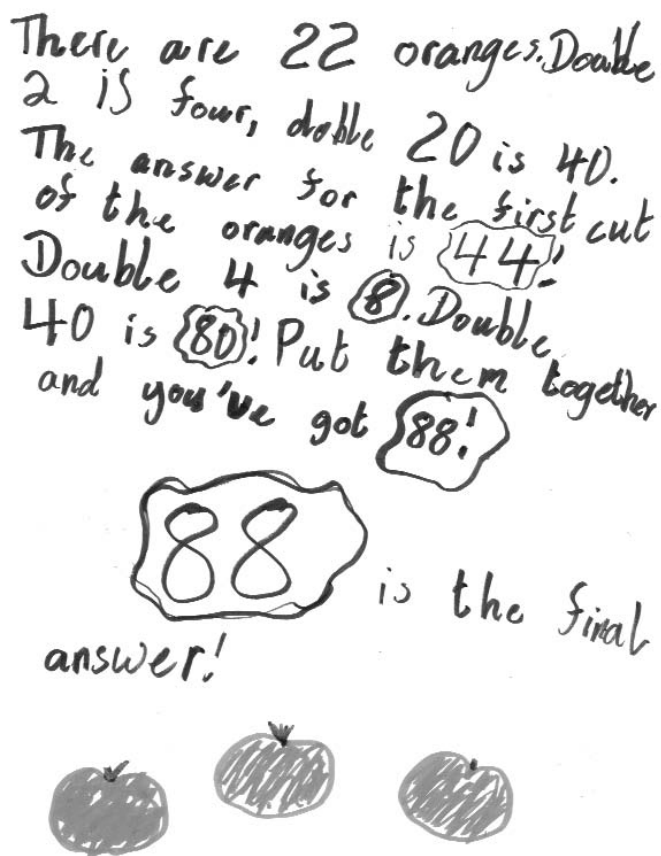 There are 22 oranges. Double
2 is four, doble 20 is 40.
The answer for the first cut
of the oranges is 44!
Double 4 is 8. Double
40 is 80! Put them together
and you've got 88!
88 is the final
answer!